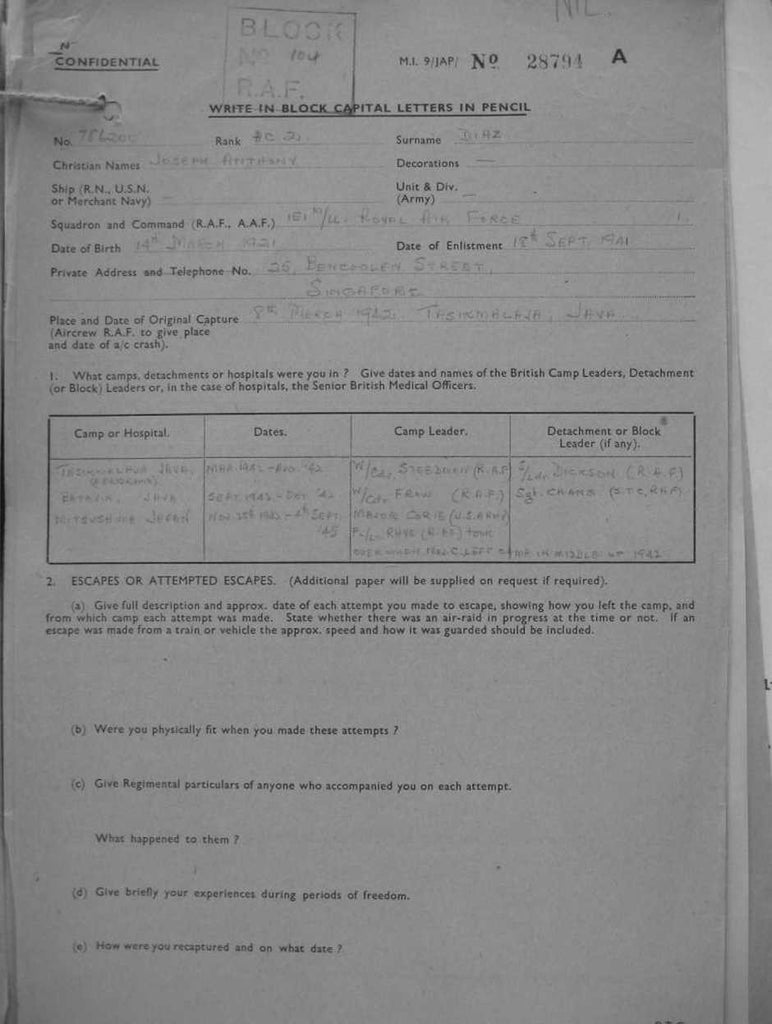 NIL.
BLOCK
No 104
R.A.F.
CONFIDENTIAL
M.I. 9/JAP/ No 28794 A
WRITE IN BLOCK CAPITAL LETTERS IN PENCIL
No. Rank AC 2 Surname DIAZ
Christian Names JOSEPH ANTHONY Decorations —
Ship (R.N., U.S.N. or Merchant Navy) — Unit & Div. (Army) —
Squadron and Command (R.A.F., A.A.F.) 151 M/U. ROYAL AIR FORCE
Date of Birth 14th MARCH 1921 Date of Enlistment 18th SEPT. 1941
Private Address and Telephone No. 25, BENCOOLEN STREET,
SINGAPORE
Place and Date of Original Capture 8th MARCH 1942. TASIKMALAJA, JAVA.
(Aircrew R.A.F. to give place
and date of a/c crash).
1. What camps, detachments or hospitals were you in ? Give dates and names of the British Camp Leaders, Detachment
(or Block) Leaders or, in the case of hospitals, the Senior British Medical Officers.
Camp or Hospital. Dates. Camp Leader. Detachment or Block Leader (if any).
TASIKMALAJA JAVA, MAR. 1942 - AUG. '42 W/Cdr. STEEDMEN (R.A.F) DICKSON (R.A.F)
BATAVIA, JAVA SEPT. 1942 - OCT '42 W/Cdr. (R.A.F.) Sgt. CHANG
JAPAN NOV. 25th 1942 - SEPT. '45 MAJOR (U.S. ARMY)
RHYS (R.AF) took
OVER WHEN LEFT IN MIDDLE OF
2. ESCAPES OR ATTEMPTED ESCAPES. (Additional paper will be supplied on request if required).
(a) Give full description and approx. date of each attempt you made to escape, showing how you left the camp, and
from which camp each attempt was made. State whether there was an air-raid in progress at the time or not. If an
escape was made from a train or vehicle the approx. speed and how it was guarded should be included.
(b) Were you physically fit when you made these attempts ?
(c) Give Regimental particulars of anyone who accompanied you on each attempt.
What happened to them ?
(d) Give briefly your experiences during periods of freedom.
(e) How were you recaptured and on what date ?